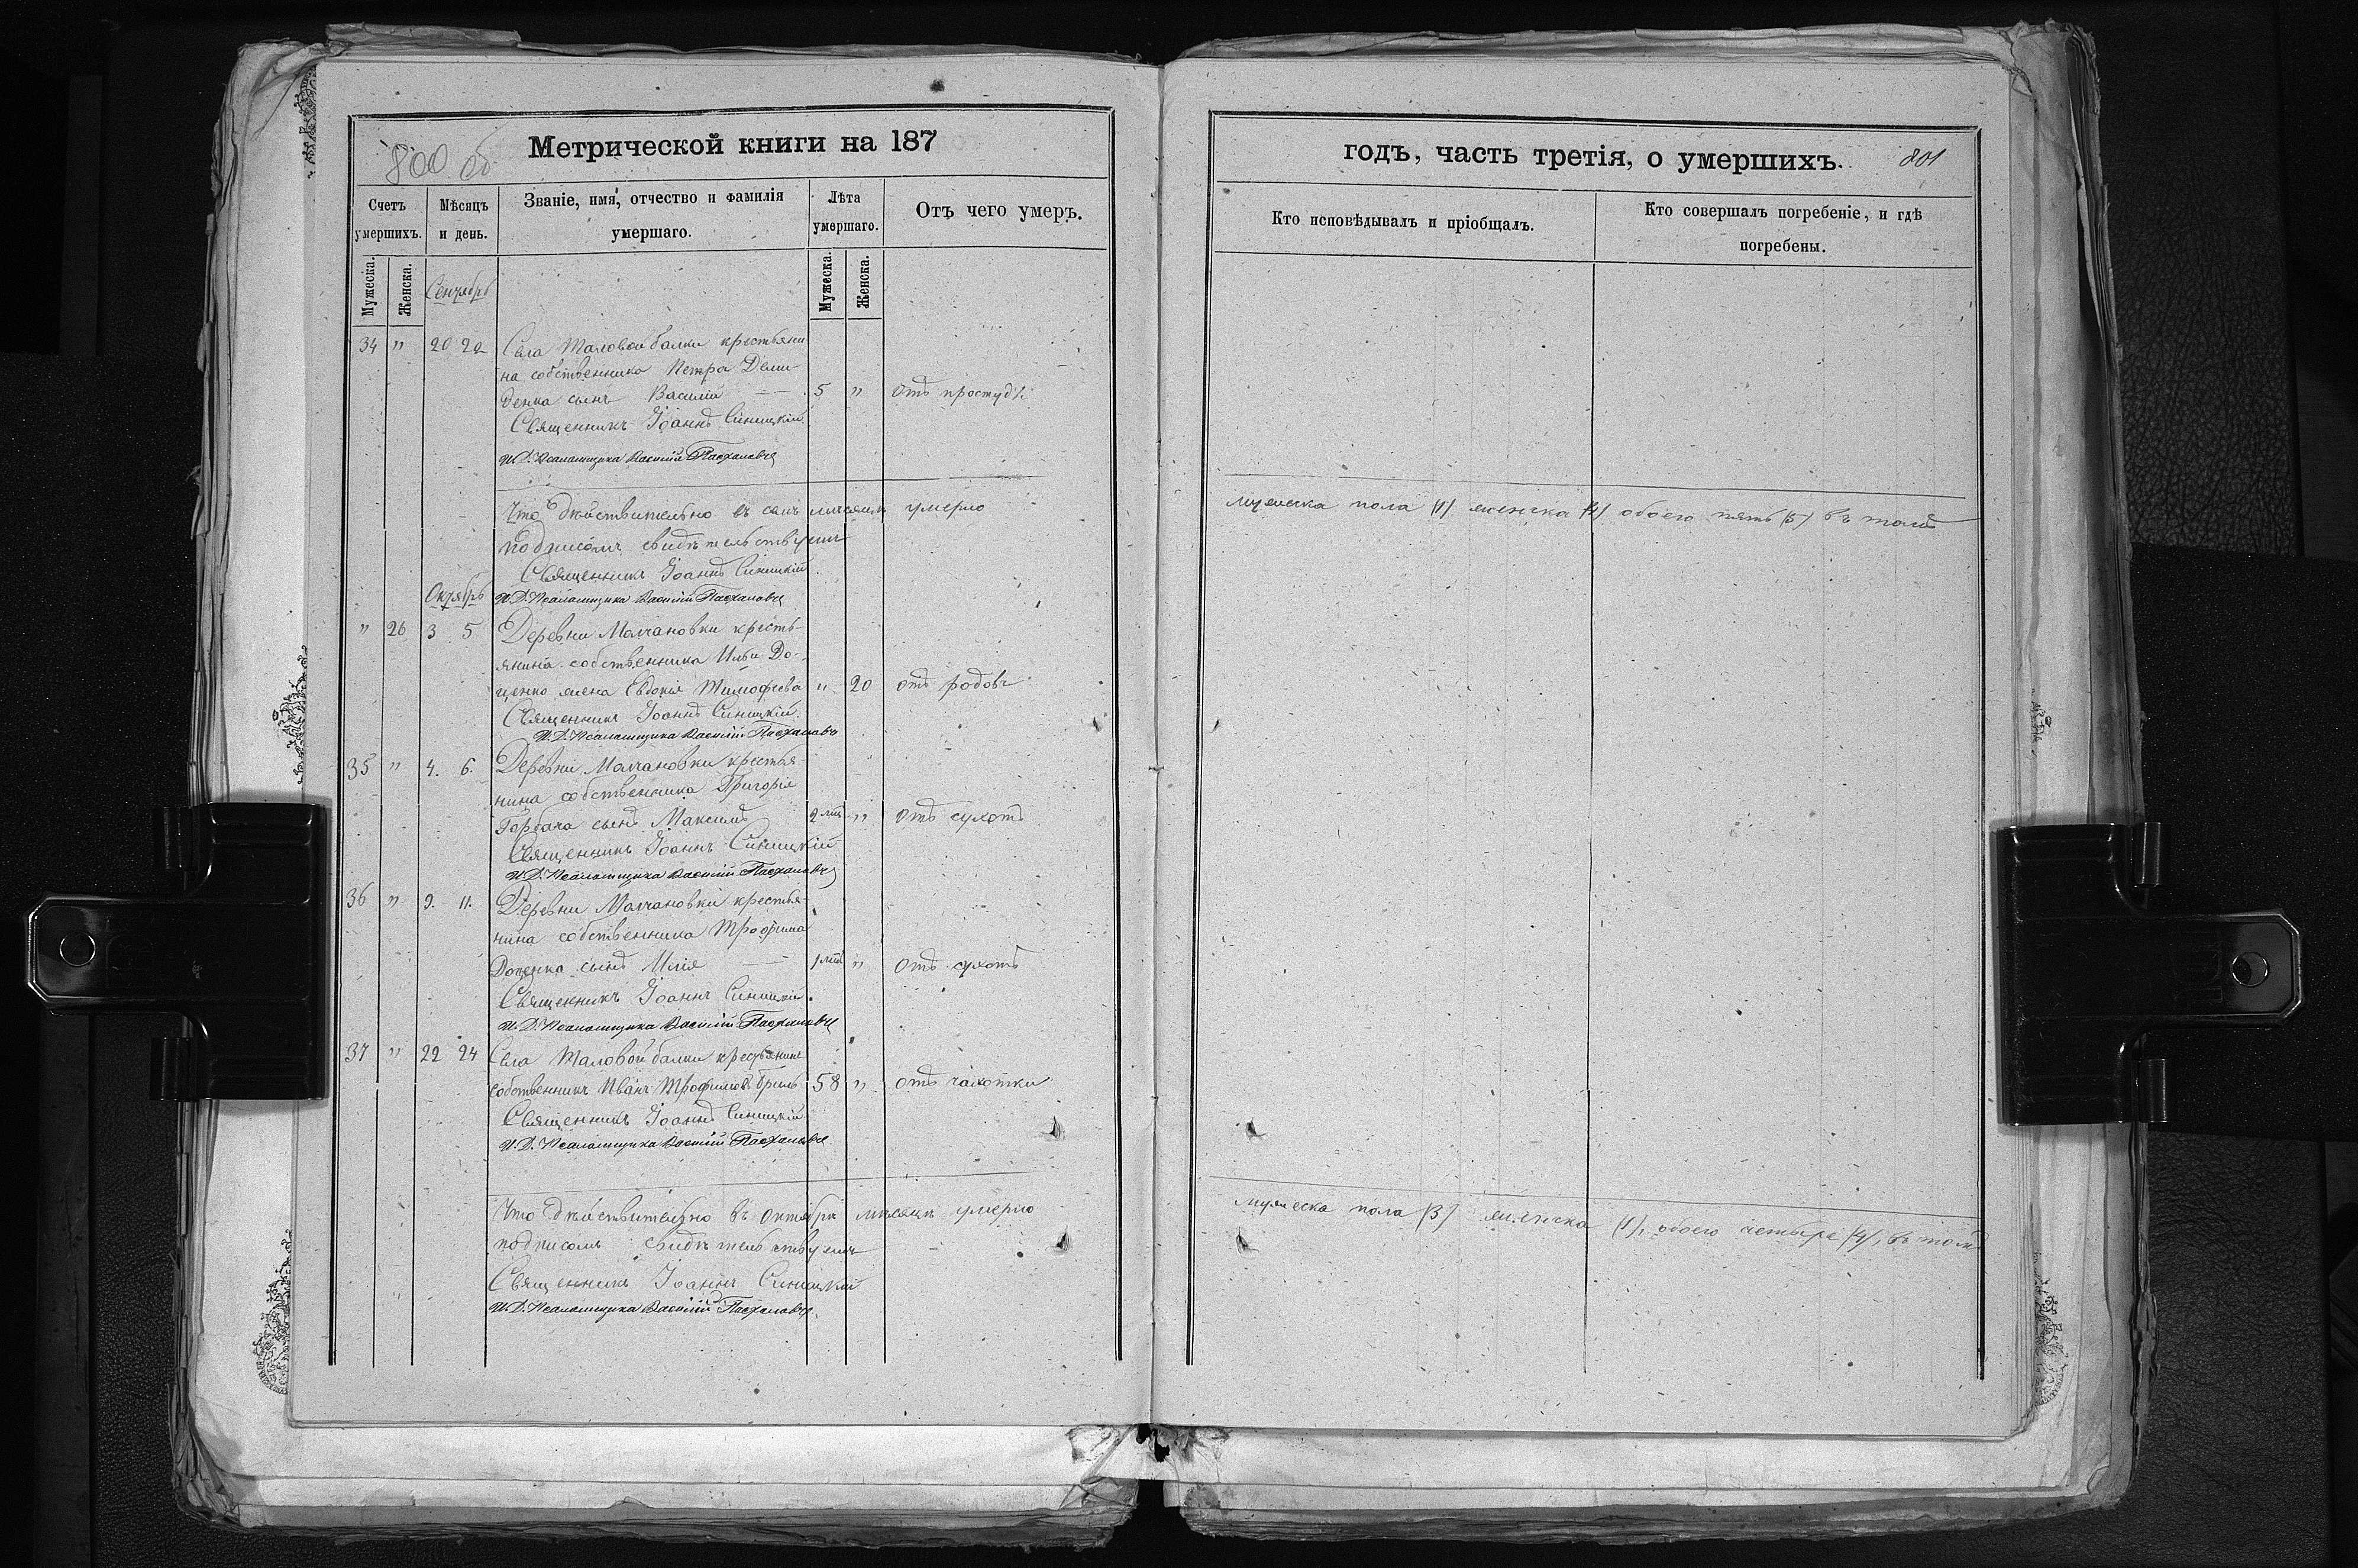 800 об
Метрической книги на 187
Счетъ умершихъ.
Мѣсяцъ и день.
Званіе, имя, отчество и фамилія умершаго.
Лѣта умершаго.
Отъ чего умеръ.
Мужеска.
Женска.
Мужеска.
Женска.
Сентябрь
34 " 20 22 Села Таловой балки крестьяни
на собственника Петра Деми-
денка сынъ Василій 5 " отъ простуды
Священникъ Іоаннъ Синицкій
И.Д. Псаломщика Василій
Что дѣйствительно въ семъ мѣсяцѣ умерло
подписомъ свидѣтельствуемъ
Священникъ Іоаннъ Синицкій
Октябрь
И.Д. Псаломщика Василій
" 26 3 5 Деревни Молчановки кресть-
янина собственника Ильи До-
ценко жена Евдокія Тимофѣева " 20 отъ родовъ
Священникъ Іоаннъ Синицкій
И.Д. Псаломщика Василій
35 " 4. 6. Деревни Молчановки крестья-
нина собственника Григорія
Горбача сынъ Максимъ 2 мѣс " отъ сухотъ
Священникъ Іоаннъ Синицкій
И.Д. Псаломщика Василій
36 " 9. 11. Деревни Молчановки крестья-
нина собственника Трофима
Доценка сынъ Илія 1 мѣс " отъ сухотъ
Священникъ Іоаннъ Синицкій
И.Д. Псаломщика Василій
37 " 22 24 Села Таловой балки крестьянинъ
собственникъ Иванъ Трофимовъ Бриль 58 " отъ чахотки
Священникъ Іоаннъ Синицкій
И.Д. Псаломщика Василій
Что дѣйствительно въ октябрѣ мѣсяцѣ умерло
подписомъ свидѣтельствуемъ
Священникъ Іоаннъ Синицкій
И.Д. Псаломщика Василій
годъ, часть третія, о умершихъ.
801
Кто исповѣдывалъ и пріобщалъ.
Кто совершалъ погребеніе, и гдѣ погребены.
мужеска пола (1) женска (4) обоего пять (5) въ томъ
мужеска пола (3) женска (1), обоего четыре (4), въ томъ